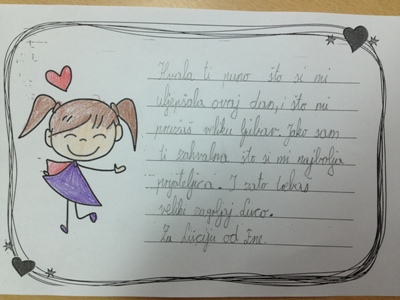 Hvala ti puno što si mi
uljepšala ovaj dan, i što mi
pružaš veliku ljubav. Jako sam
ti zahvalna što si mi najbolja
prijateljica. I zato
veliki zagrljaj Luco.
Za Luciju od Ene.